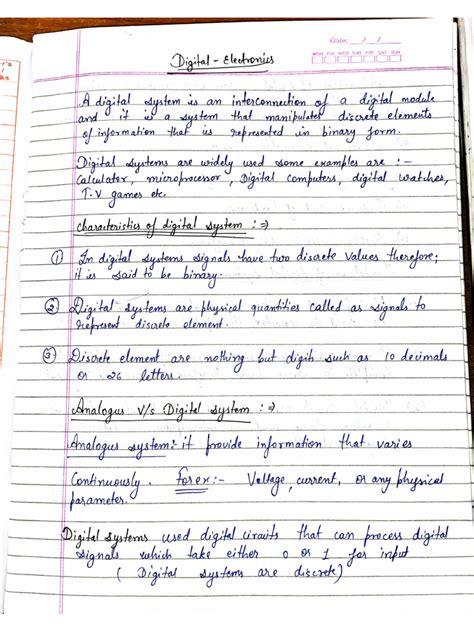 Date: __/__/__
MON TUE WED THU FRI SAT SUN
Digital - Electronics
A digital system is an interconnection of a digital module
and it is a system that manipulates discrete elements
of information that is represented in binary form.
Digital systems are widely used some examples are :-
Calculator, microprocessor, Digital computers, digital watches,
T.V games etc.
Characteristics of digital system : =>
① In digital systems signals have two discrete values therefore;
it is said to be binary.
② Digital systems are physical quantities called as signals to
represent discrete element.
③ Discrete element are nothing but digits such as 10 decimals
or 26 letters.
Analogus V/s Digital system : =>
Analogus system:- it provide information that varies
Continuously. for ex:- Voltage, current, or any physical
parameter.
Digital systems used digital ciruits that can process digital
signals which take either 0 or 1 for input
( Digital systems are discrete)